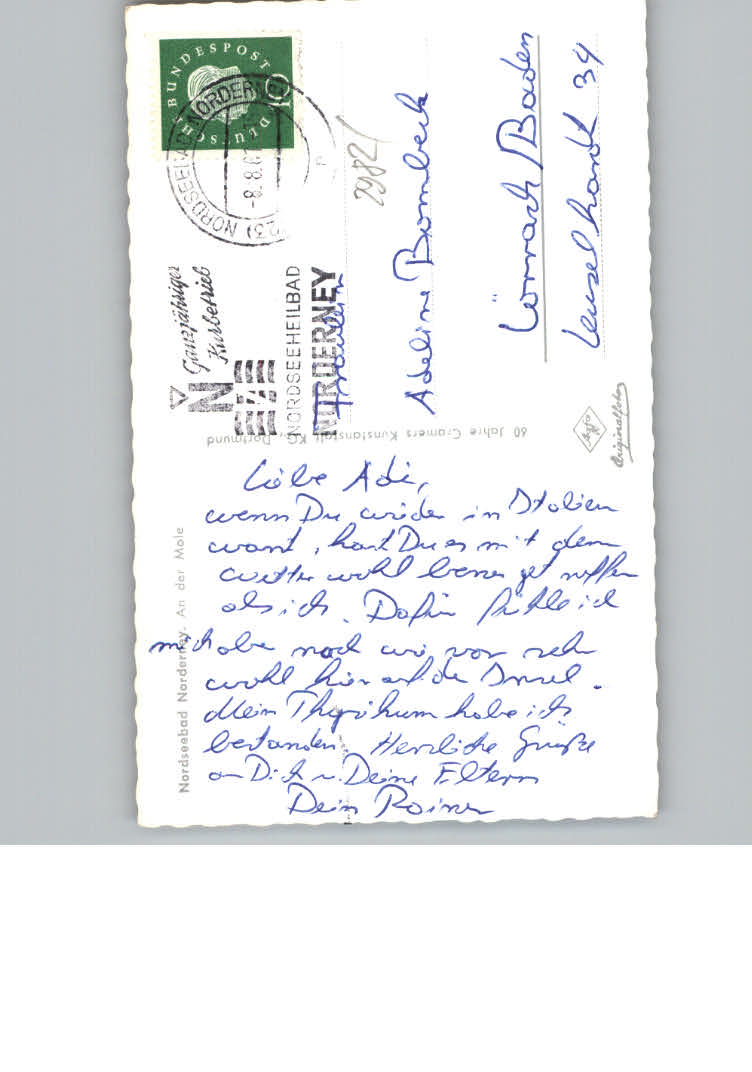 DEUTSCHE BUNDESPOST
10
(23) NORDSEEBAD NORDERNEY
-8.8.6
2982/
Ganzjähriger
Kurbetrieb
N
NORDSEEHEILBAD
NORDERNEY
Fräulein
Adeline Brombeck
Lörrach/Baden
34
60 Jahre Cramers Kunstanstalt KG, Dortmund
Agfa
Originalfoto
Nordseebad Norderney. An der Mole
Liebe Adi,
wenn Du wieder in Italien
warst, hast Du es mit dem
Wetter wohl besser getroffen
als ich. Dafür fühle ich
mich aber nach wie vor sehr
wohl hier auf der Insel.
Mein Physikum habe ich
bestanden. Herzliche Grüße
an Dich u. Deine Eltern
Dein Rainer